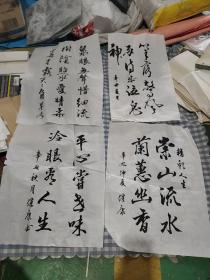 泉眼無聲惜細流
樹陰照水愛晴柔
筆落驚風
雨詩成泣鬼
神
平心嘗世味
冷眼看人生
辛丑秋月健康書
人生
崇山流水
蘭蕙幽香
辛丑仲夏 健康